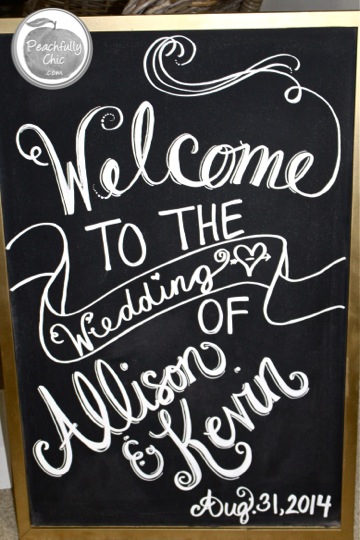 Peachfully
Chic
.com
Welcome
TO THE
Wedding
OF
Allison
& Kevin
Aug. 31, 2014